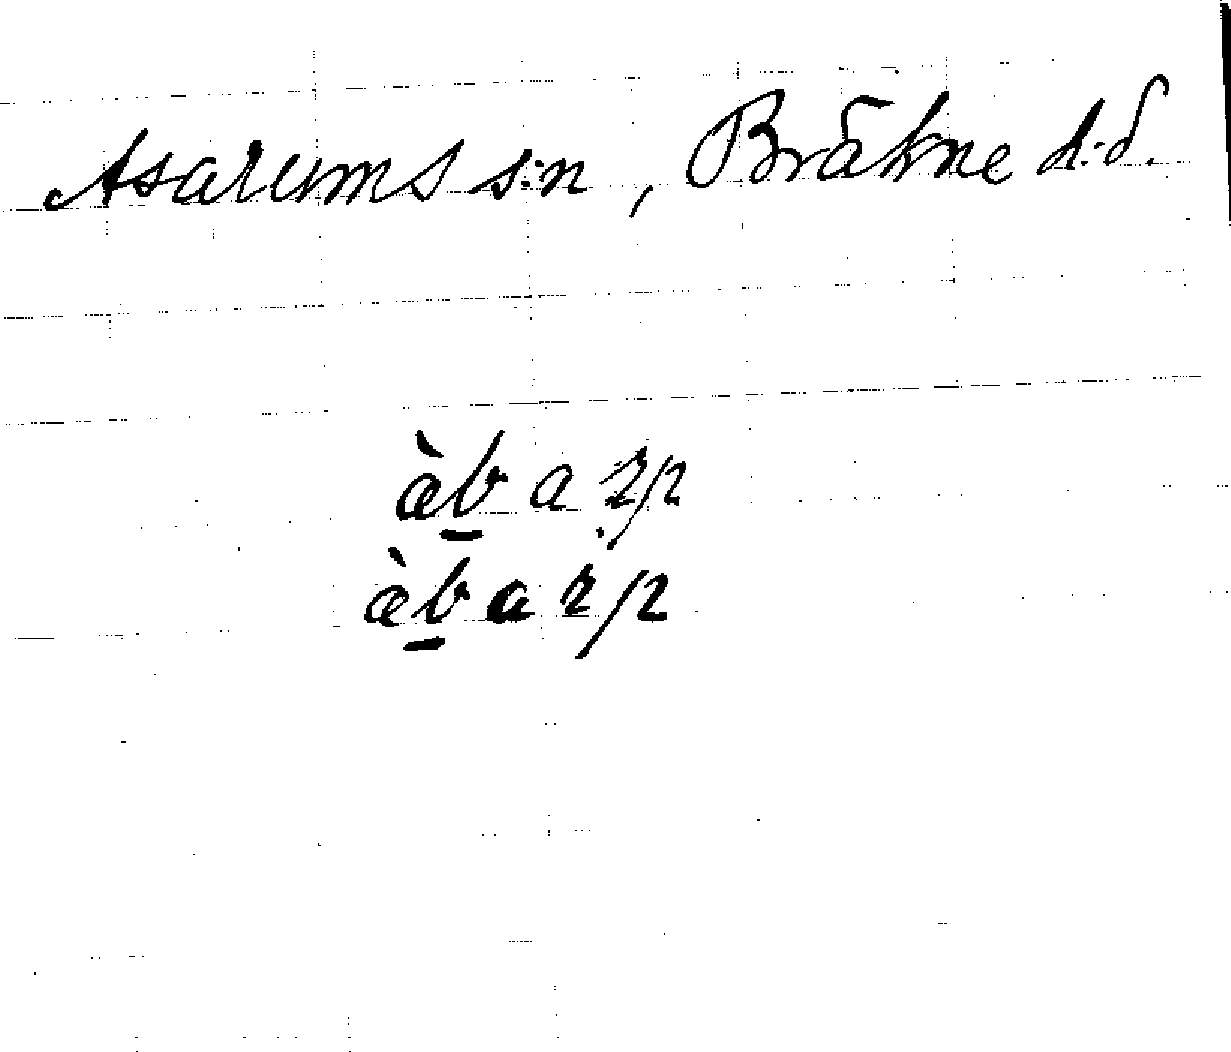 Asarums s:n, Bräkne h:d.
àb̲ a 2/2
àb̲ a 2/2